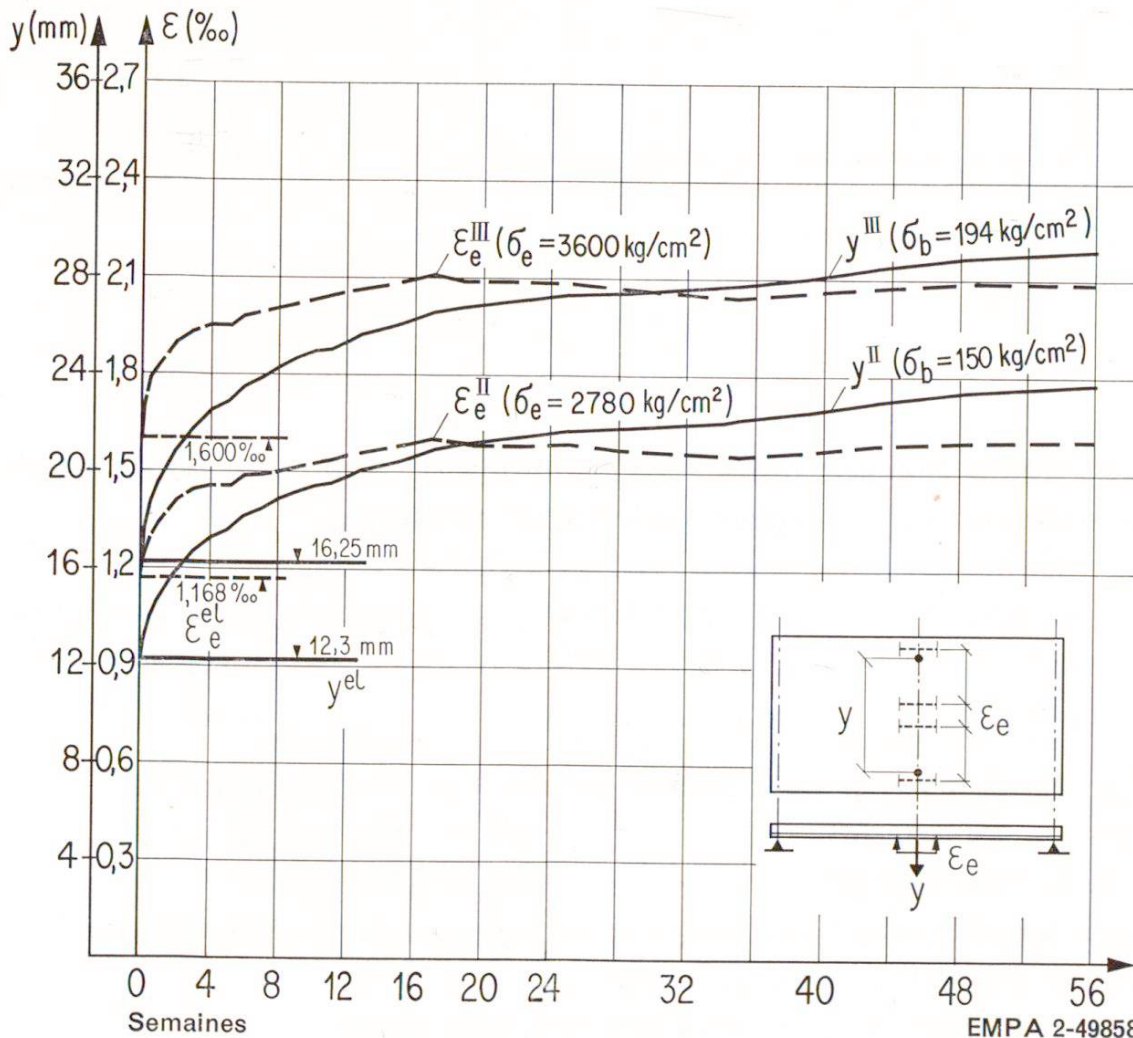 y (mm) ε (‰)
36 2,7
32 2,4
28 2,1
24 1,8
20 1,5
16 1,2
12 0,9
8 0,6
4 0,3
ε_e^III (σ_e = 3600 kg/cm²)
y^III (σ_b = 194 kg/cm²)
y^II (σ_b = 150 kg/cm²)
ε_e^II (σ_e = 2780 kg/cm²)
1,600‰
16,25 mm
1,168‰
ε_e^el
12,3 mm
y^el
y
ε_e
ε_e
y
0 4 8 12 16 20 24 32 40 48 56
Semaines
EMPA 2-49858